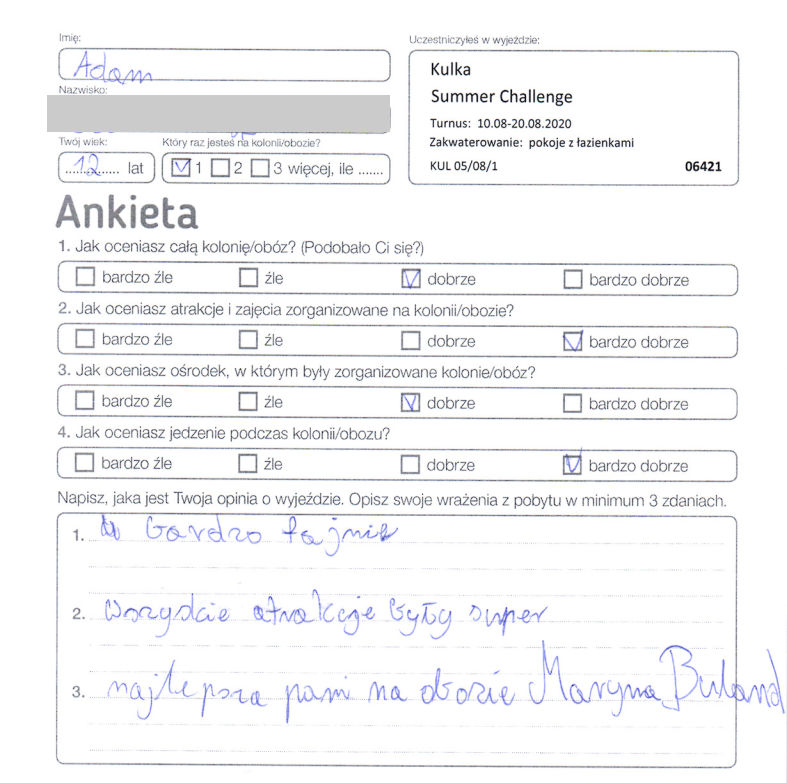 Imię:
Adam
Nazwisko:
Twój wiek:
12 lat
Który raz jesteś na kolonii/obozie?
1 2 3 więcej, ile .......
Uczestniczyłeś w wyjeździe:
Kulka
Summer Challenge
Turnus: 10.08-20.08.2020
Zakwaterowanie: pokoje z łazienkami
KUL 05/08/1 06421
Ankieta
1. Jak oceniasz całą kolonię/obóz? (Podobało Ci się?)
bardzo źle źle dobrze bardzo dobrze
2. Jak oceniasz atrakcje i zajęcia zorganizowane na kolonii/obozie?
bardzo źle źle dobrze bardzo dobrze
3. Jak oceniasz ośrodek, w którym były zorganizowane kolonie/obóz?
bardzo źle źle dobrze bardzo dobrze
4. Jak oceniasz jedzenie podczas kolonii/obozu?
bardzo źle źle dobrze bardzo dobrze
Napisz, jaka jest Twoja opinia o wyjeździe. Opisz swoje wrażenia z pobytu w minimum 3 zdaniach.
1. bardzo fajnie
2. wszyskie atrakcje były super
3. najlepsza pani na obozie Maryna